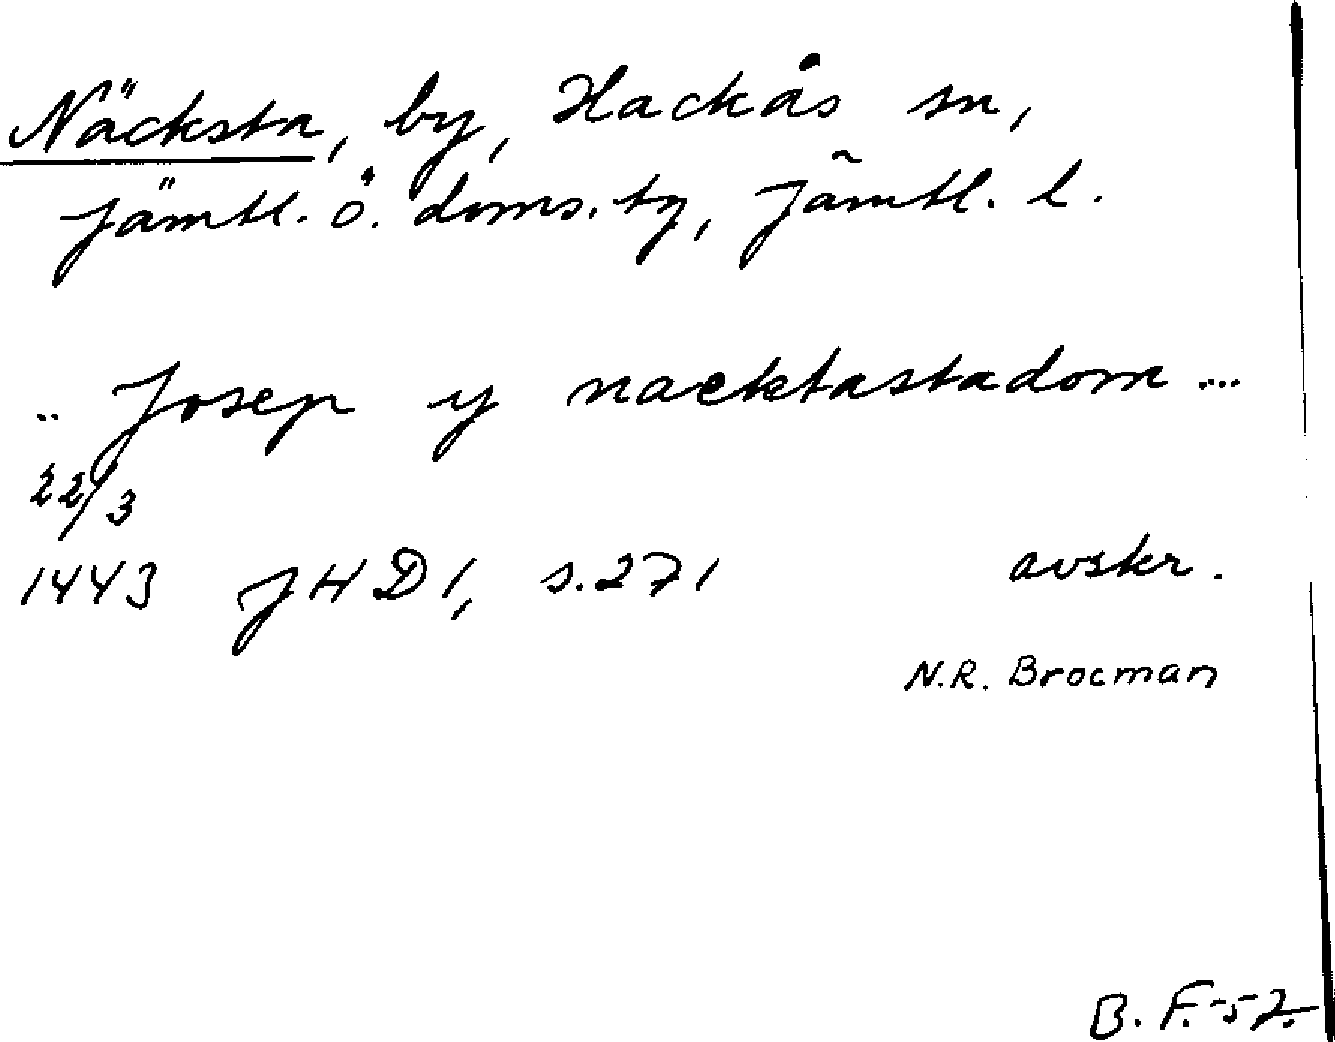 Näcksta, by, Hackås sn,
Jämtl. ö. doms. tg, Jämtl. l.
.. Josep y nacktastadom ...
22/3
1443 JHD 1, s. 271 avskr.
N.R. Brocman
B. F. -52.